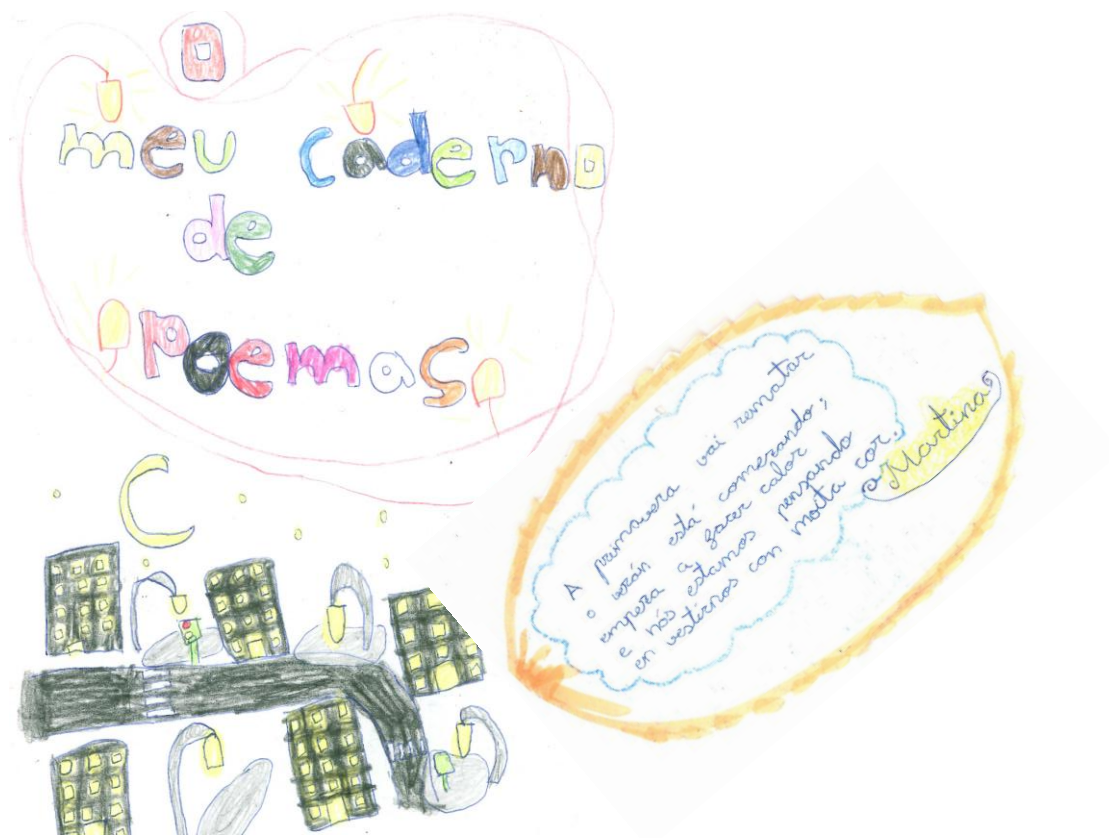 O
meu caderno
de
poemas
A primavera vai rematar
o verán está comezando;
empeza a facer calor
e nós estamos penzando
en vestirnos con moita cor.
Martina